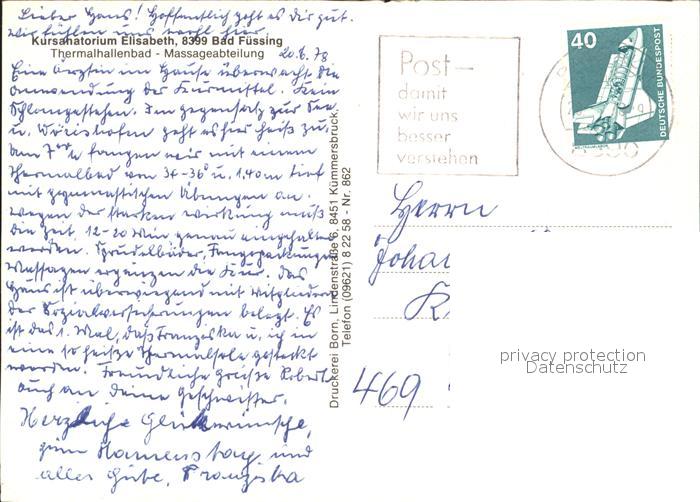 Lieber Hans! Hoffentlich geht es dir gut.
wir fühlen uns wohl hier.
Kursanatorium Elisabeth, 8399 Bad Füssing
Thermalhallenbad - Massageabteilung
20.6.78
Eine Ärztin im Hause überwacht die
Anwendung der Kurmittel. Kein
Schlangestehen. Im Gegensatz zur
u. Wörishofen geht es hier heiß zu.
Um 7 fangen wir mit einem
Thermalbad von 34-36° u. 1,40m tief
mit gymnastischen Übungen an.
wegen der starken Wirkung muß
die Zeit 12-20 Min genau eingehalten
werden. Sprudelbäder, Fangopackungen
Massagen ergänzen die Kur. Das
Haus ist überwiegend mit Mitgliedern
der Sozialversicherungen belegt. Es
ist das 1. Mal, daß Franziska u. ich in
eine so heiße Thermalsole gesteckt
werden. Freundliche Grüße Robert
auch an deine Geschwister.
Herzliche Glückwünsche,
zum Namenstag und
alles Gute, Franziska
Druckerei Born, Lindenstraße 6, 8451 Kümmersbruck,
Telefon (09621) 8 22 58 - Nr. 862
Post –
damit
wir uns
besser
verstehen
40
DEUTSCHE BUNDESPOST
Herrn
Joha
K
469
privacy protection
Datenschutz